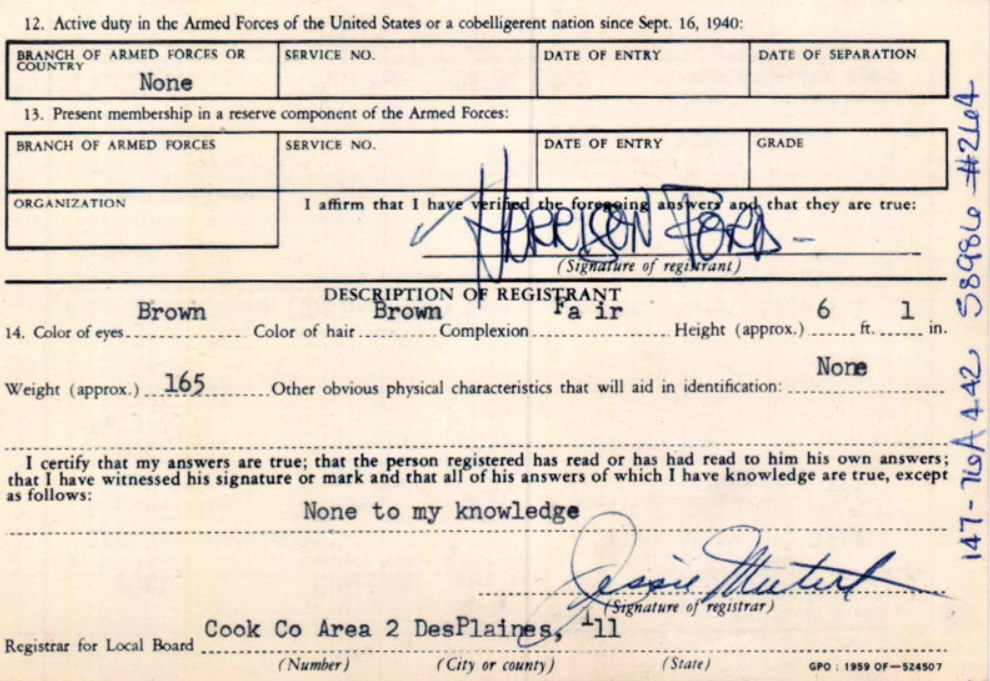 12. Active duty in the Armed Forces of the United States or a cobelligerent nation since Sept. 16, 1940:
BRANCH OF ARMED FORCES OR COUNTRY SERVICE NO. DATE OF ENTRY DATE OF SEPARATION
None
13. Present membership in a reserve component of the Armed Forces:
BRANCH OF ARMED FORCES SERVICE NO. DATE OF ENTRY GRADE
ORGANIZATION I affirm that I have verified the foregoing answers and that they are true:
HARRISON FORD
(Signature of registrant)
DESCRIPTION OF REGISTRANT
Brown Brown Fa ir 6 1
14. Color of eyes Color of hair Complexion Height (approx.) ft. in.
None
Weight (approx.) 165 Other obvious physical characteristics that will aid in identification:
I certify that my answers are true; that the person registered has read or has had read to him his own answers;
that I have witnessed his signature or mark and that all of his answers of which I have knowledge are true, except
as follows:
None to my knowledge
Jessie
(Signature of registrar)
Registrar for Local Board Cook Co Area 2 DesPlaines, Ill
(Number) (City or county) (State) GPO : 1959 OF—524507